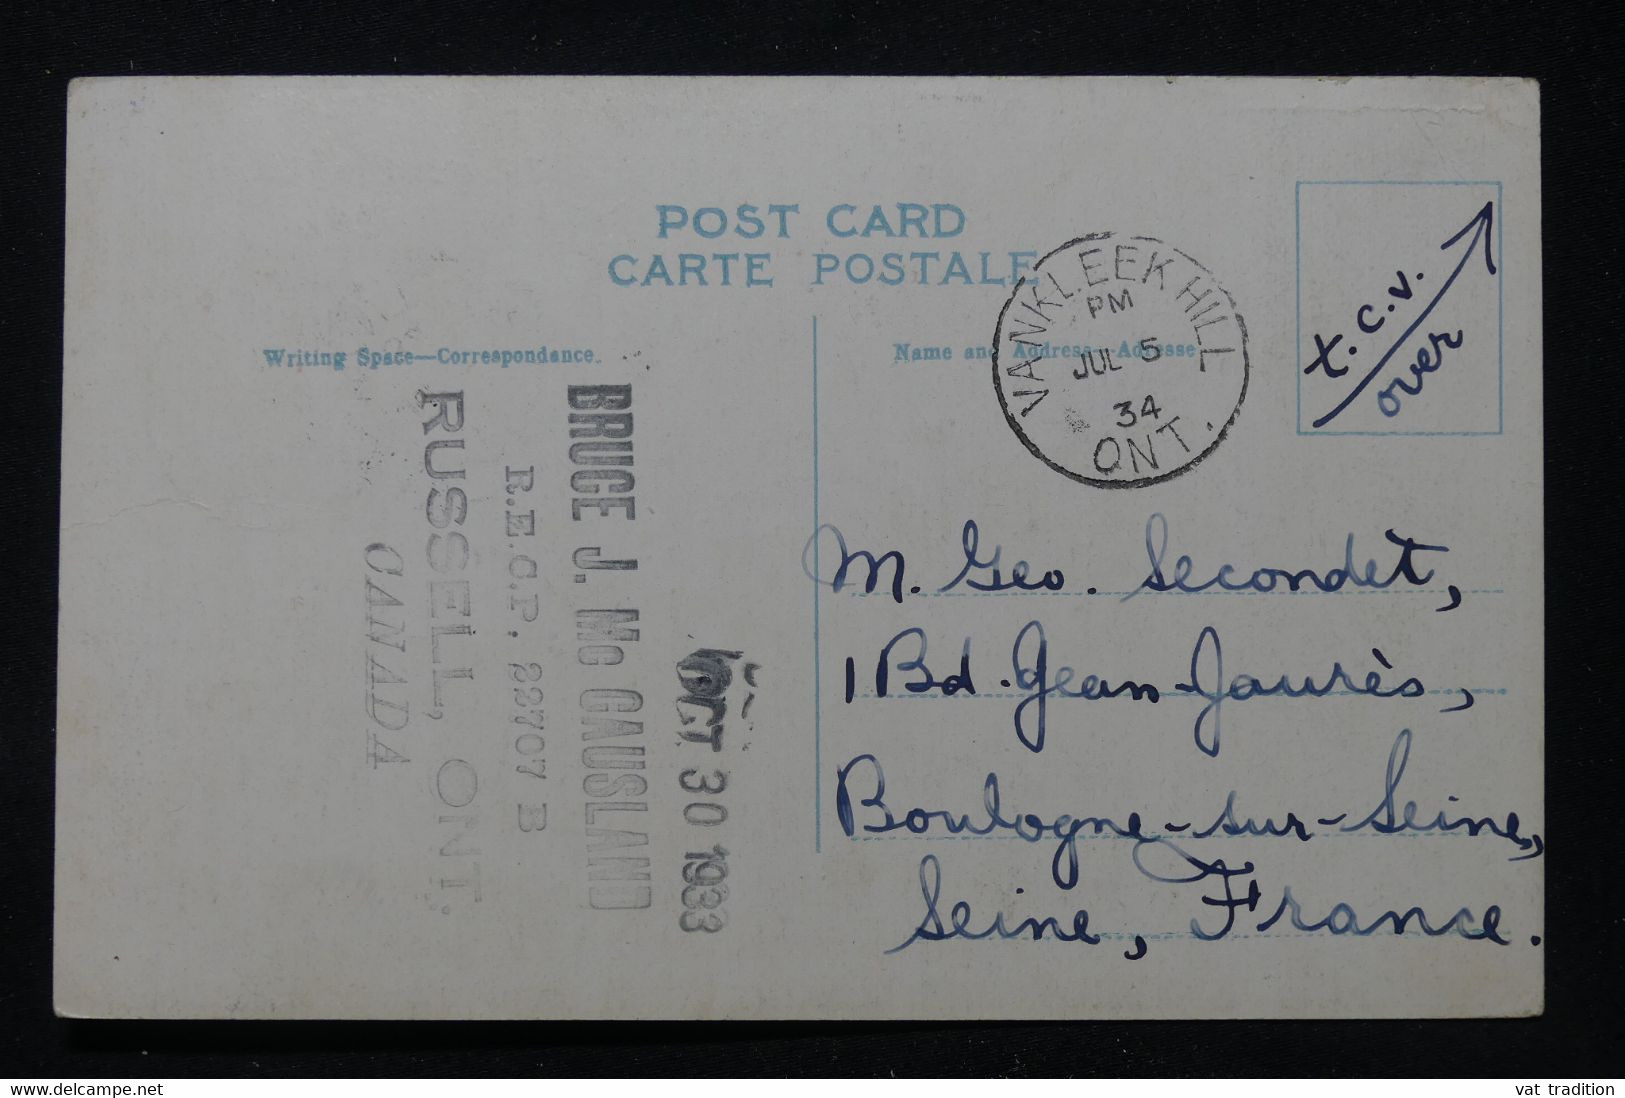 POST CARD
CARTE POSTALE
Writing Space—Correspondence
Name and Address—Adresse
VANKLEEK HILL
PM
JUL 5
34
ONT.
t.c.v.
over
M. Geo. Secondet,
1 Bd. Jean-Jaurès,
Boulogne-sur-Seine,
Seine, France.
OCT 30 1933
BRUCE J. Mc CAUSLAND
R.E.C.P. 22707 B
RUSSELL, ONT.
CANADA
delcampe.net
vat tradition